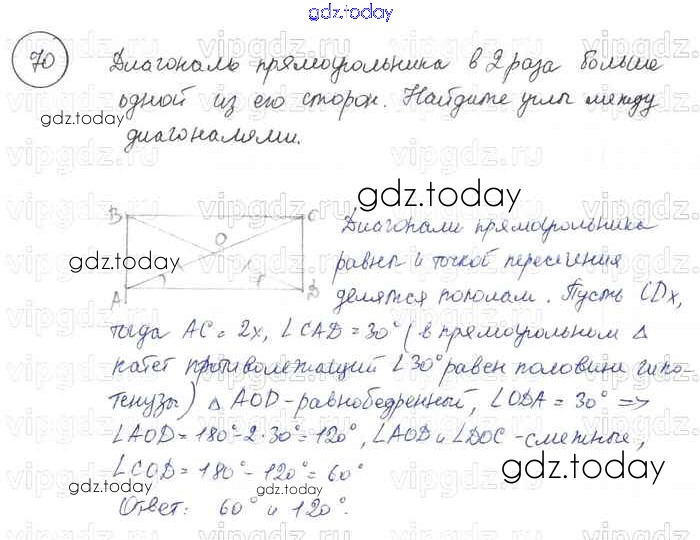 gdz.today
70
Диагональ прямоугольника в 2 раза больше
одной из его сторон. Найдите углы между
gdz.today
диагоналями.
gdz.today
B C
O
Диагонали прямоугольника
gdz.today
равны и точкой пересечения
A D
делятся пополам. Пусть CD x,
тогда AC = 2x, ∠CAD = 30° (в прямоугольном Δ
катет противолежащий ∠30° равен половине гипо-
тенузы) Δ AOD - равнобедренный, ∠ODA = 30° =>
∠AOD = 180° - 2·30° = 120°, ∠AOD и ∠DOC - смежные,
∠COD = 180° - 120° = 60°
gdz.today
gdz.today
Ответ: 60° и 120°.
gdz.today